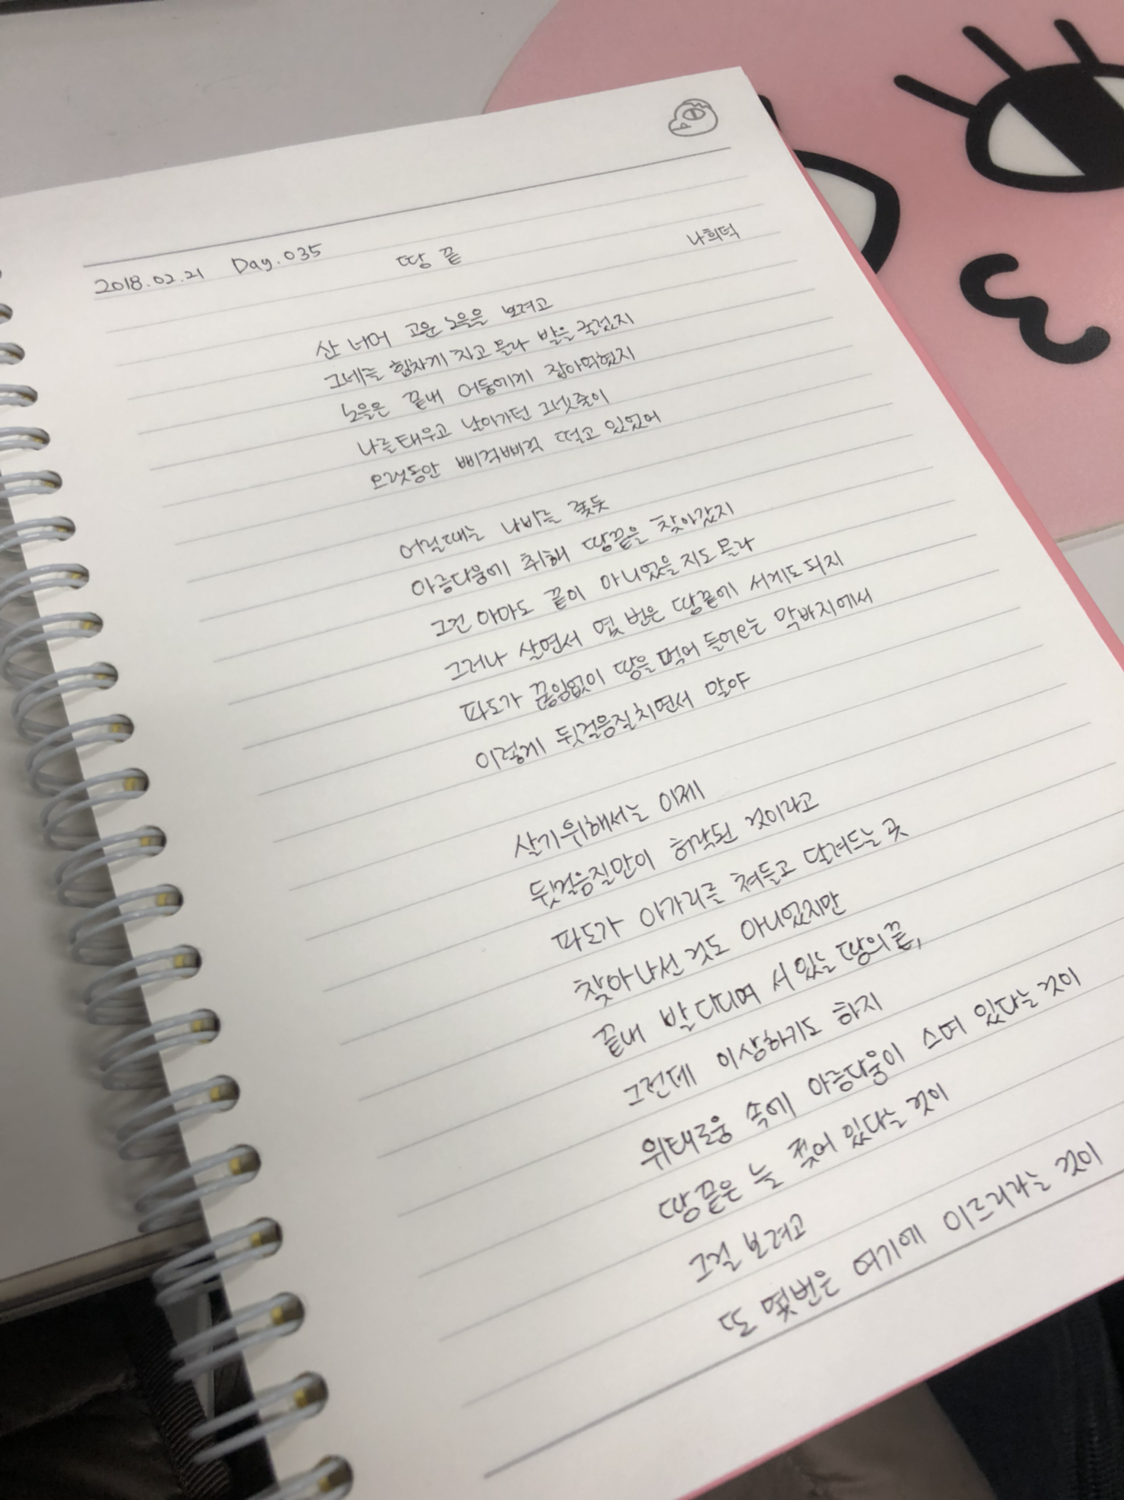 2018.02.21 Day.035 땅 끝 나희덕
산 너머 고운 노을을 보려고
그네를 힘차게 차고 올라 발을 굴렀지
노을은 끝내 어둠에게 잡아먹혔지
나를 태우고 날아가던 그넷줄이
오랫동안 삐걱삐걱 떨고 있었어
어릴때는 나비를 쫓듯
아름다움에 취해 땅끝을 찾아갔지
그건 아마도 끝이 아니었을지도 몰라
그러나 살면서 몇 번은 땅끝에 서게도 되지
파도가 끊임없이 땅을 먹어 들어오는 막바지에서
이렇게 뒷걸음질치면서 말야
살기 위해서는 이제
뒷걸음질만이 허락된 것이라고
파도가 아가리를 쳐들고 달려드는 곳
찾아나선 것도 아니었지만
끝내 발 디디며 서 있는 땅의 끝,
그런데 이상하기도 하지
위태로움 속에 아름다움이 스며 있다는 것이
땅끝은 늘 젖어 있다는 것이
그걸 보려고
또 몇번은 여기에 이르리라는 것이